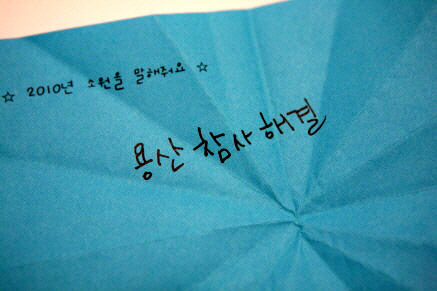 ☆ 2010년 소원을 말해줘요 ☆
용산 참사 해결